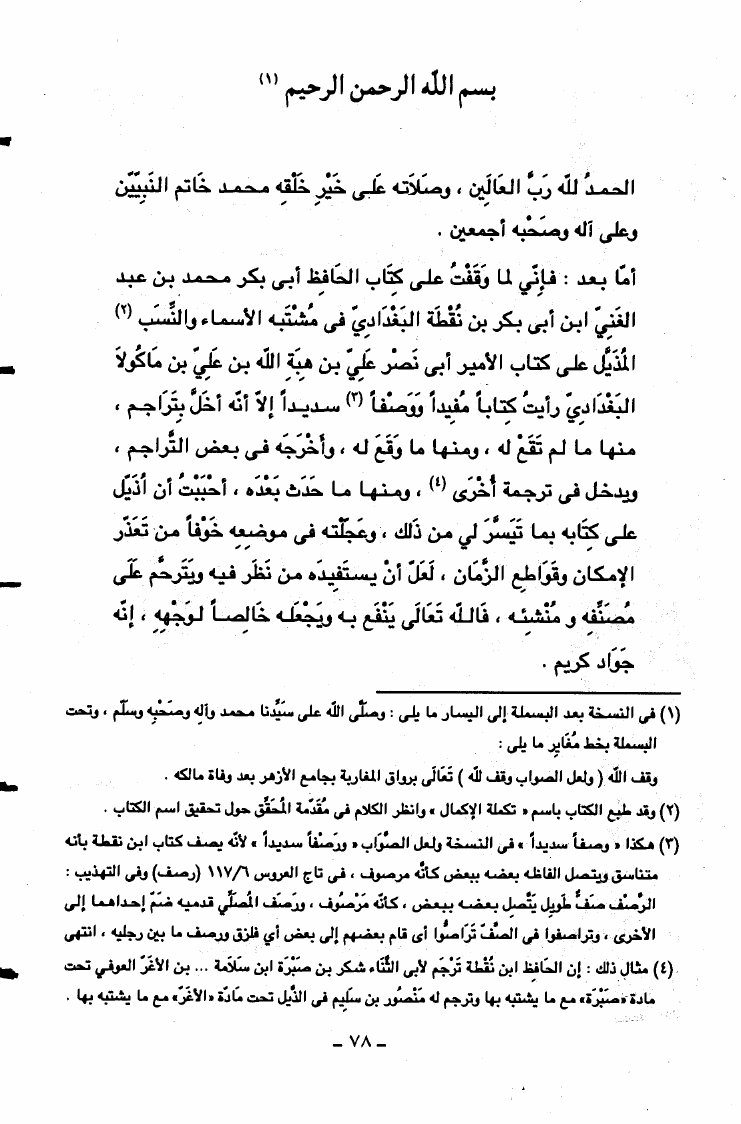 بسم الله الرحمن الرحيم (١)
الحمدُ لله رَبِّ العَالَمِين ، وصَلَاَته على خَيْرِ خَلْقِه محمد خَاتم النَّبِيِّين
وعلى آله وصَحْبِه أجمعين .
أمّا بعد : فإنّي لما وَقَفْتُ على كِتَاب الحَافِظ أبى بكر محمد بن عبد
الغَنِيّ ابن أبى بكر بن نُقْطَة البَغْدَاديّ فى مُشْتَبه الأسماء والنِّسَب (٢)
المُذَيَّل على كتاب الأمير أبى نَصْر عَلِيّ بن هِبَةِ الله بن عَلِيّ بن مَاكُولاَ
البَغْدَاديّ رأيتُ كِتاباً مُفِيداً وَوَصْفاً (٣) سديداً إلاّ أنّه أخَلَّ بِتَرَاجم ،
منها ما لم تَقَعْ له ، ومنها ما وَقَعَ له ، وأخْرَجَه فى بعض التَّراجم ،
ويدخل فى ترجمة أُخْرَى (٤) ، ومنها ما حَدَث بَعْدَه ، أحْبَبْتُ أن أُذَيِّل
على كِتَابه بما تَيَسَّرَ لي من ذلك ، وعَجَّلْته فى موضعِه خَوْفاً من تَعَذّر
الإمكان وقَوَاطِع الزَّمَان ، لَعَلّ أنْ يستَفِيدَه من نَظَر فيه ويَتَرحَّم عَلَى
مُصَنِّفِه و مُنْشِئه ، فَالله تَعَالَى يَنْفَع به ويَجْعَله خَالِصاً لوَجْهِهِ ، إنّه
جَوَاد كريم .
(١) فى النسخة بعد البسملة إلى اليسار ما يلى : وصلَّى الله على سَيِّدنا محمد وآلِه وصَحْبِه وسلَّم ، وتحت
البسملة بخط مُغَايِر ما يلى :
وقف الله ( ولعل الصواب وقف لله ) تَعَالَى برواق المغاربة بجامع الأزهر بعد وفاة مالكه .
(٢) وقد طبع الكتاب باسم « تكملة الإكمال » وانظر الكلام فى مُقَدّمة المُحَقّق حول تحقيق اسم الكتاب .
(٣) هكذا « وصفاً سديداً » فى النسخة ولعل الصَّوَاب « ورَصْفاً سديداً » لأنه يصف كتاب ابن نقطة بأنه
متناسق ويتصل الفاظه بعضه ببعض كأنّه مرصوف ، فى تاج العروس ١١٧/٦ (رصف) وفى التهذيب :
الرَّصْف صَفٌّ طويل يَتَّصِل بعضه ببعض ، كأنّه مَرْصُوف ، ورَصَف المُصَلِّي قدميه ضَمّ إحداهما إلى
الأخرى ، وتراصفوا فى الصَّفّ تَرَاصُّوا أى قام بعضهم إلى بعض أي فلزق ورصف ما بين رجليه ، انتهى
(٤) مثال ذلك : إن الحَافِظ ابن نُقْطَة تَرْجَم لأبى الثَّنَاء شكر بن صَبْرَة ابن سَلَامة ... بن الأَغَرّ العوفي تحت
مادة «صَبْرَة» مع ما يشتبه بها وترجم له مَنْصُور بن سليم فى الذَّيل تحت مَادّة «الأغَرّ» مع ما يشتبه بها .
_ ٧٨ _